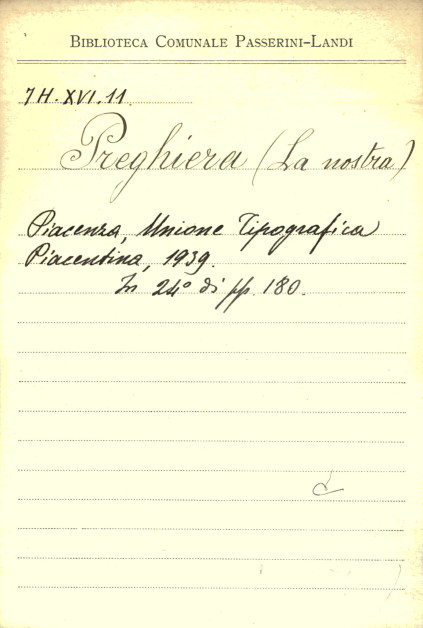 BIBLIOTECA COMUNALE PASSERINI-LANDI
7H.XVI.11
Preghiera (La nostra)
Piacenza, Unione Tipografica
Piacentina, 1939.
In 24º di pp. 180.